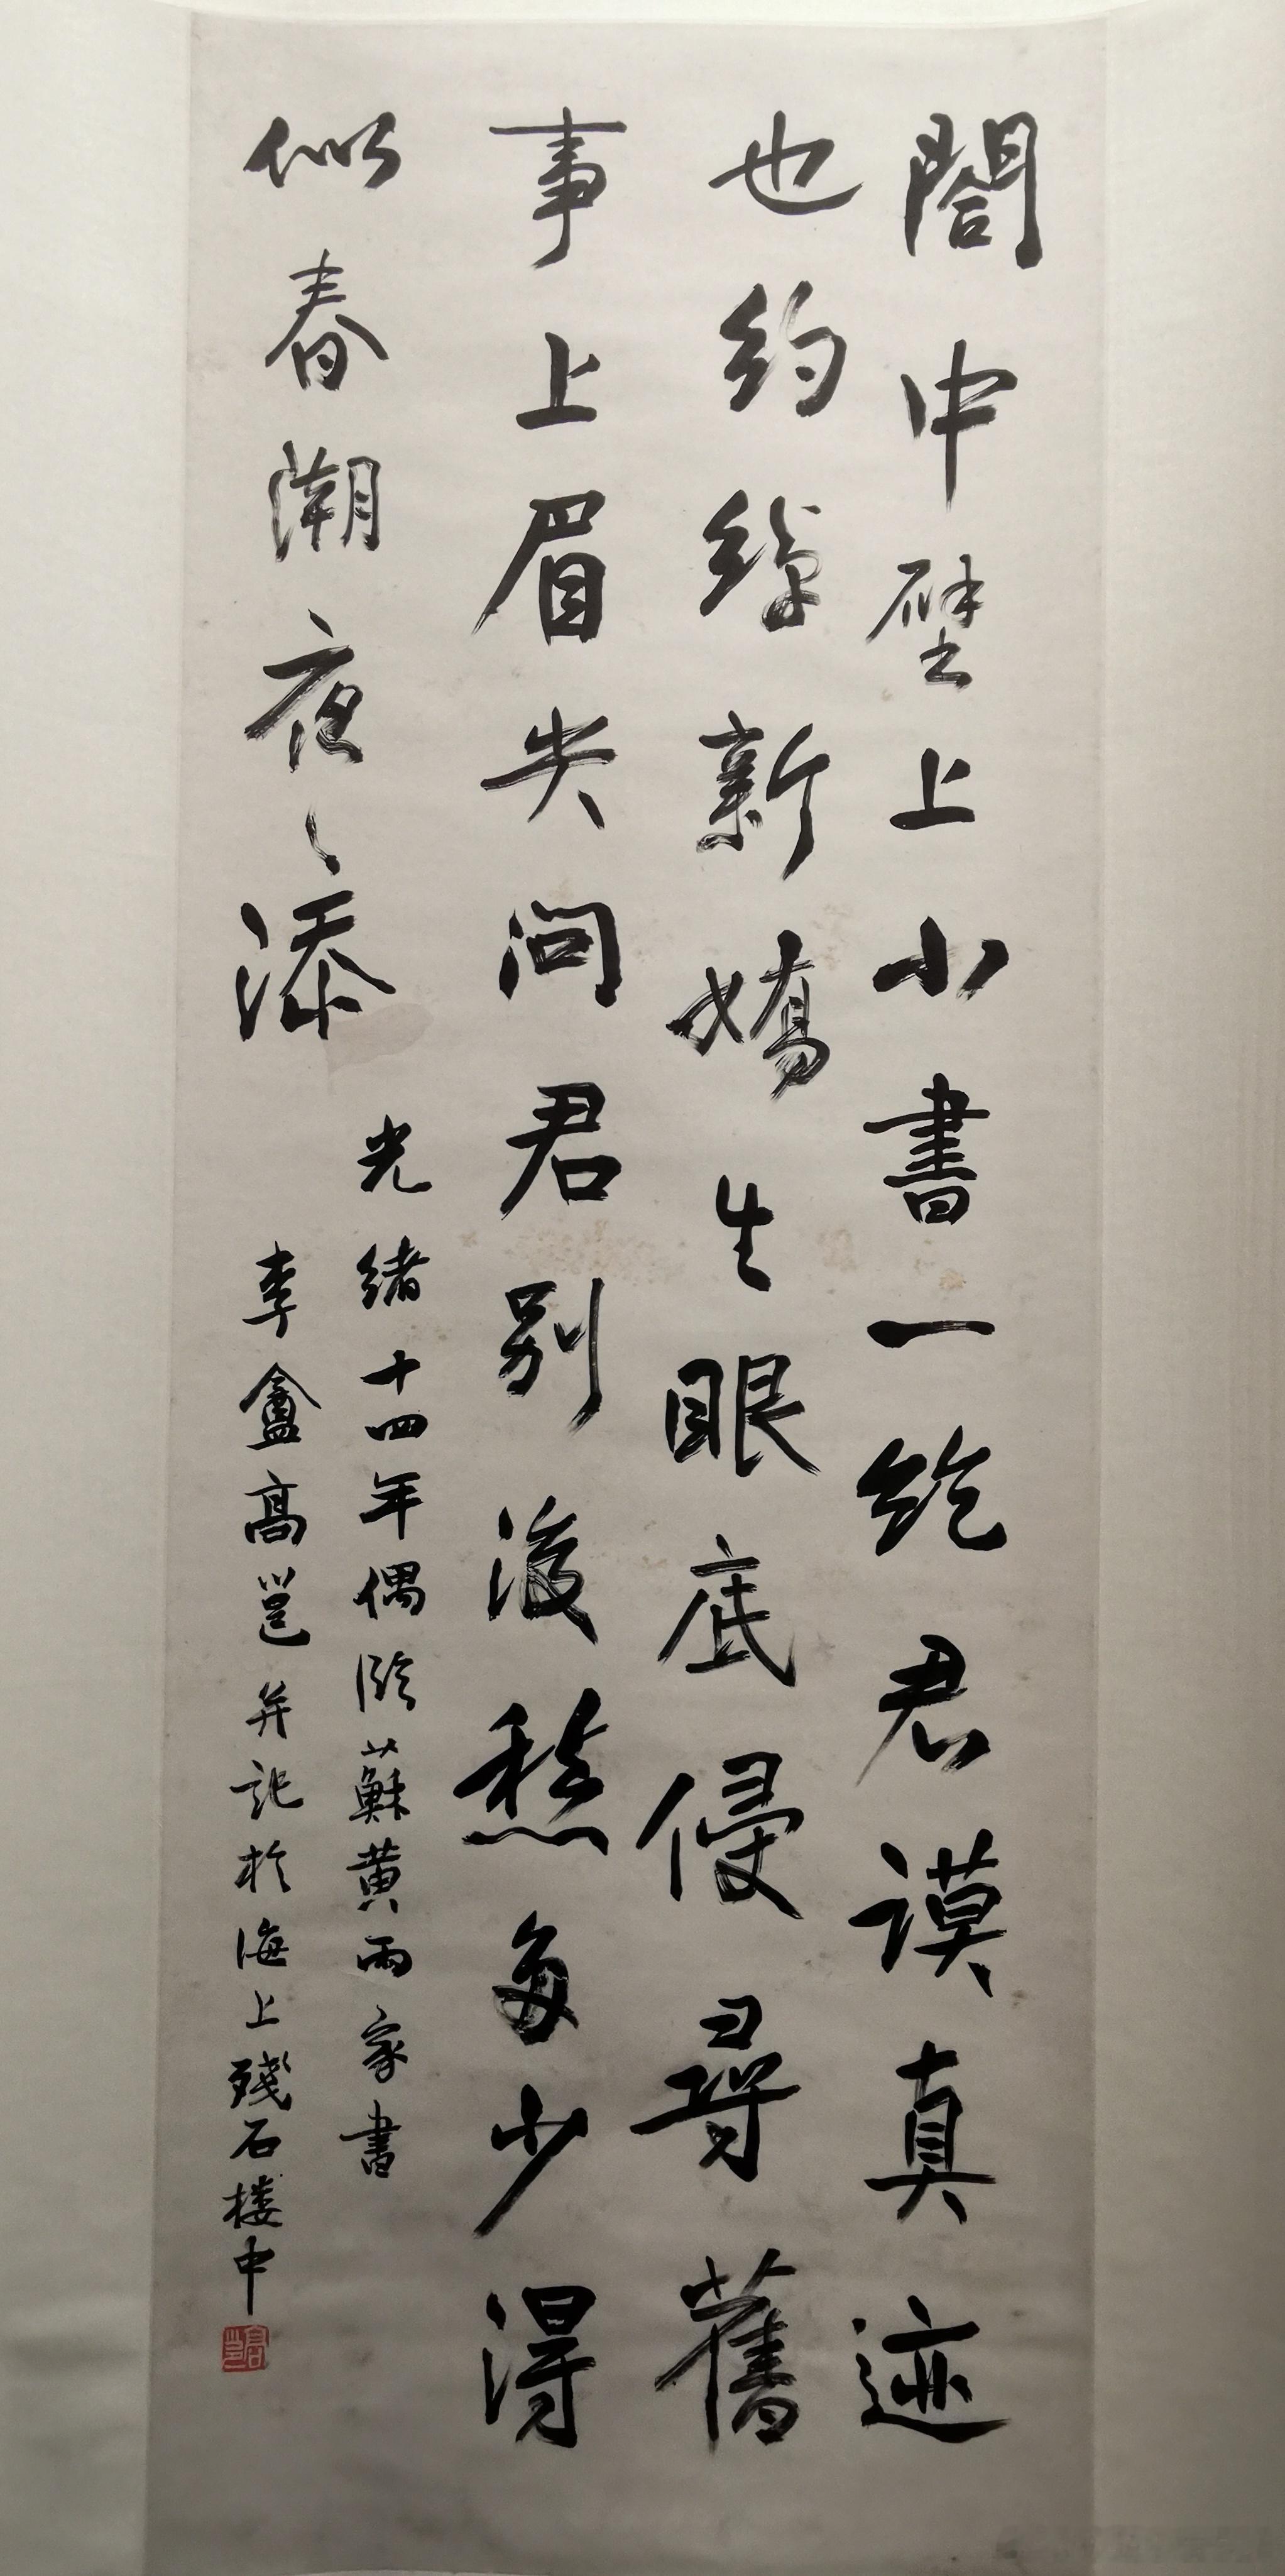 閤中壁上小書一絶君謨真迹
也約綽新嬌生眼底侵尋舊
事上眉尖問君別後愁多少得
似春潮夜〻添
光緒十四年偶臨蘇黃兩家書
李盦高邕并記於海上殘石樓中